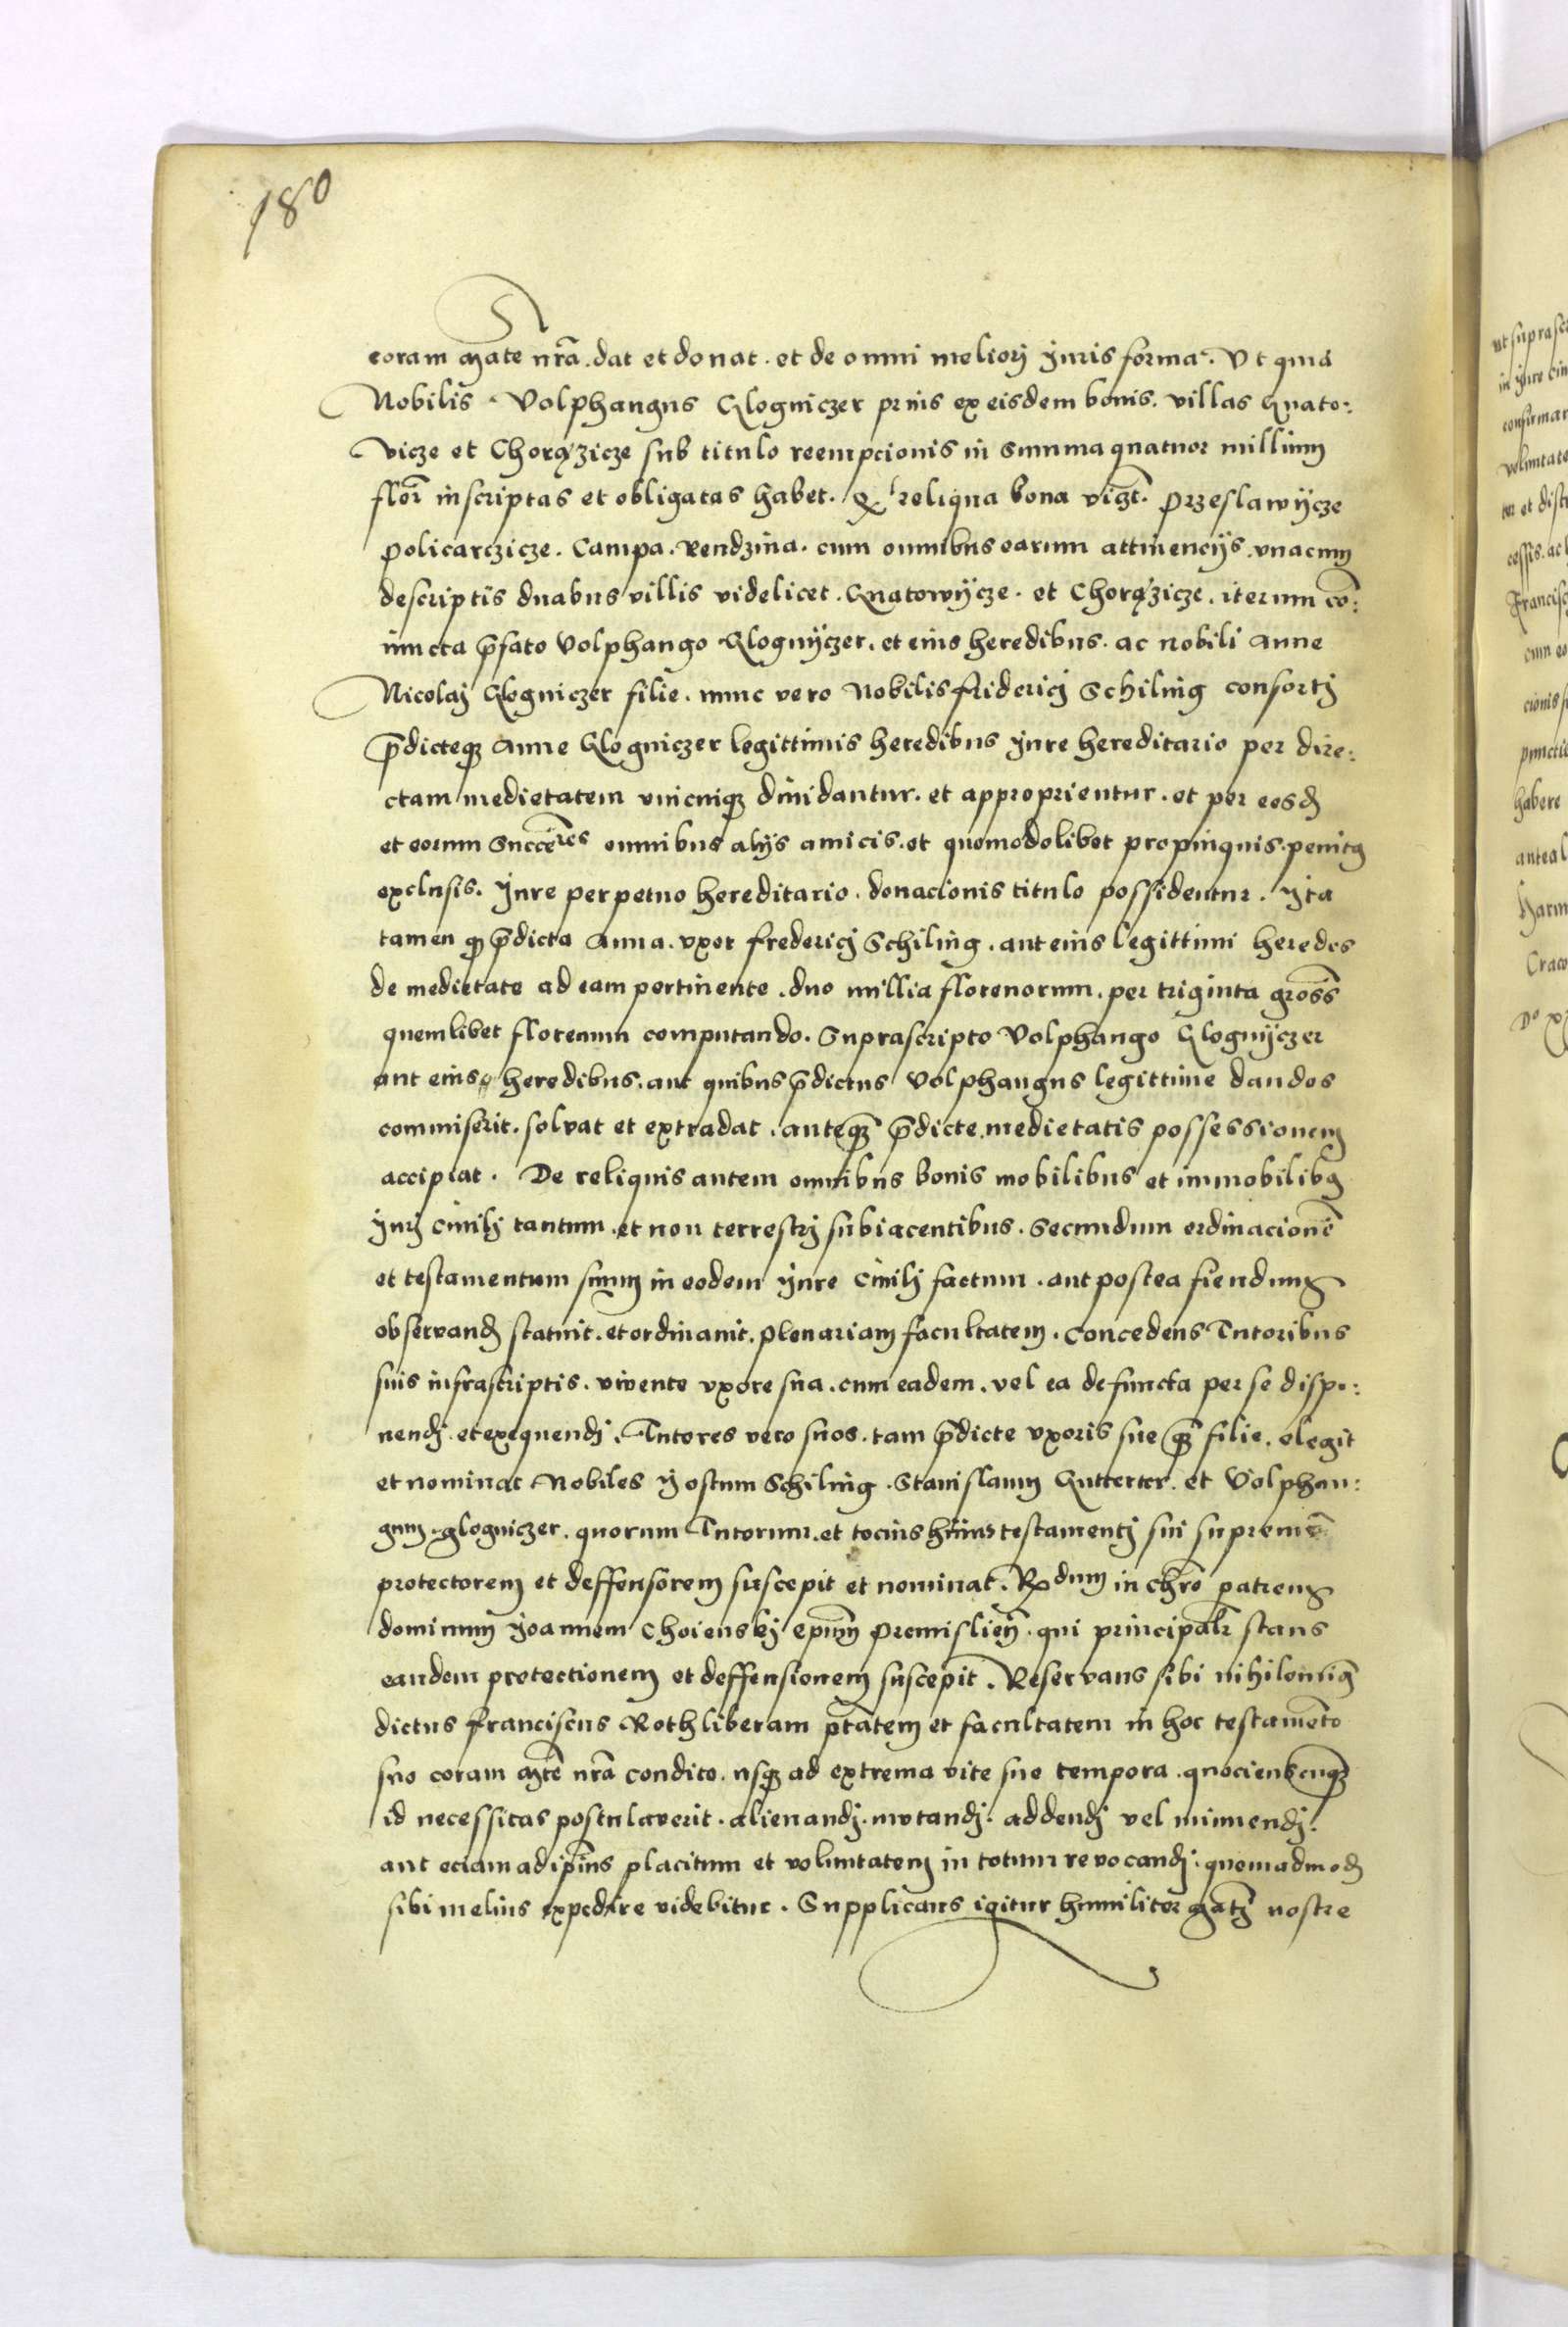 180
coram Mate nrã. dat et donat. et de omni meliorj Juris forma. Ut quia
Nobilis. Volphangus Glogniczer prius ex eisdem bonis. villas Gnato:
vicze et Chorązicze sub titulo reempcionis in Summa quatuor millium
flor inscriptas et obligatas habet. reliqua bona vizt. Przeslawÿcze
policarczicze. Campa. Rendzina. cum omnibus earum attinencijs. vnacum
descriptis duabus villis videlicet. Gnatowÿcze. et Chorązicze. iterum cõ:
iuncta p̃fato Volphango Glognÿczer. et eius heredibus. ac nobili Anne
Nicolaj Glogniczer filie. nunc vero Nobilis friderici Schiling consortj
p̃dicteqꝫ Anne Glogniczer legittimis heredibus Jure hereditario per dire:
ctam medietatem vnicuiqꝫ diuidantur. et approprientur. et per eosd
et eorum Succes̃res omnibus alijs amicis. et quomodolibet propinquis. penitꝫ
exclusis. Jure perpetuo hereditario. donacionis titulo possidentur. Jta
tamen qꝫ p̃dicta Anna. vxor frederici Schiling. aut eius legittimi heredes
de medietate ad eam pertinente. duo millia florenorum. per triginta gross̃
quemlibet florenum computando. Suprascripto Volphango Glognÿczer
aut eius heredibus. aut quibus p̃dictus Volphangus legittime dandos
commiserit. solvat et extradat. anteqꝫ p̃dicte medietatis possessionem
accipiat. De reliquis autem omnibus bonis mobilibus et immobilibꝫ
Jurj Ciuilj tantum. et non terrestrj subiacentibus. Secundum ordinacionẽ
et testamentum suum in eodem Jure Ciuilj factum. aut postea fiendum
observand statuit. et ordinauit. plenariam facultatem. concedens Tutoribus
suis infrascriptis. vivente vxore sua. cum eadem. vel ea defuncta per se dispo:
nendj. et exequendj. Tutores vero suos. tam p̃dicte vxoris sue qꝫ filie. elegit
et nominat Nobiles Jostum Schiling. Stanislaum Gutterter. et Volphan:
gum. glogniczer. quorum Tutorum. et tocius huius testamentj sui supremũ
protectorem et deffensorem suscepit et nominat. Rdum in chro patrem
dominum Joannem Choienskj epum premislien. qui principalr stans
eandem protectionem et deffensionem suscepit. Reservans sibi nihilominꝫ
dictus franciscus Roth liberam p̃tatem et facultatem in hoc testamẽto
suo coram Mte nrã condito. usqꝫ ad extrema vite sue tempora. quocienscunqꝫ
id necessitas postulaverit. alienandj. mutandj. addendj vel minuendj.
aut eciam ad ip̃ius placitum et voluntatem in totum revocandj. quemadmod
sibi melius expedire videbitur. Supplicans igitur humiliter Matj nostre